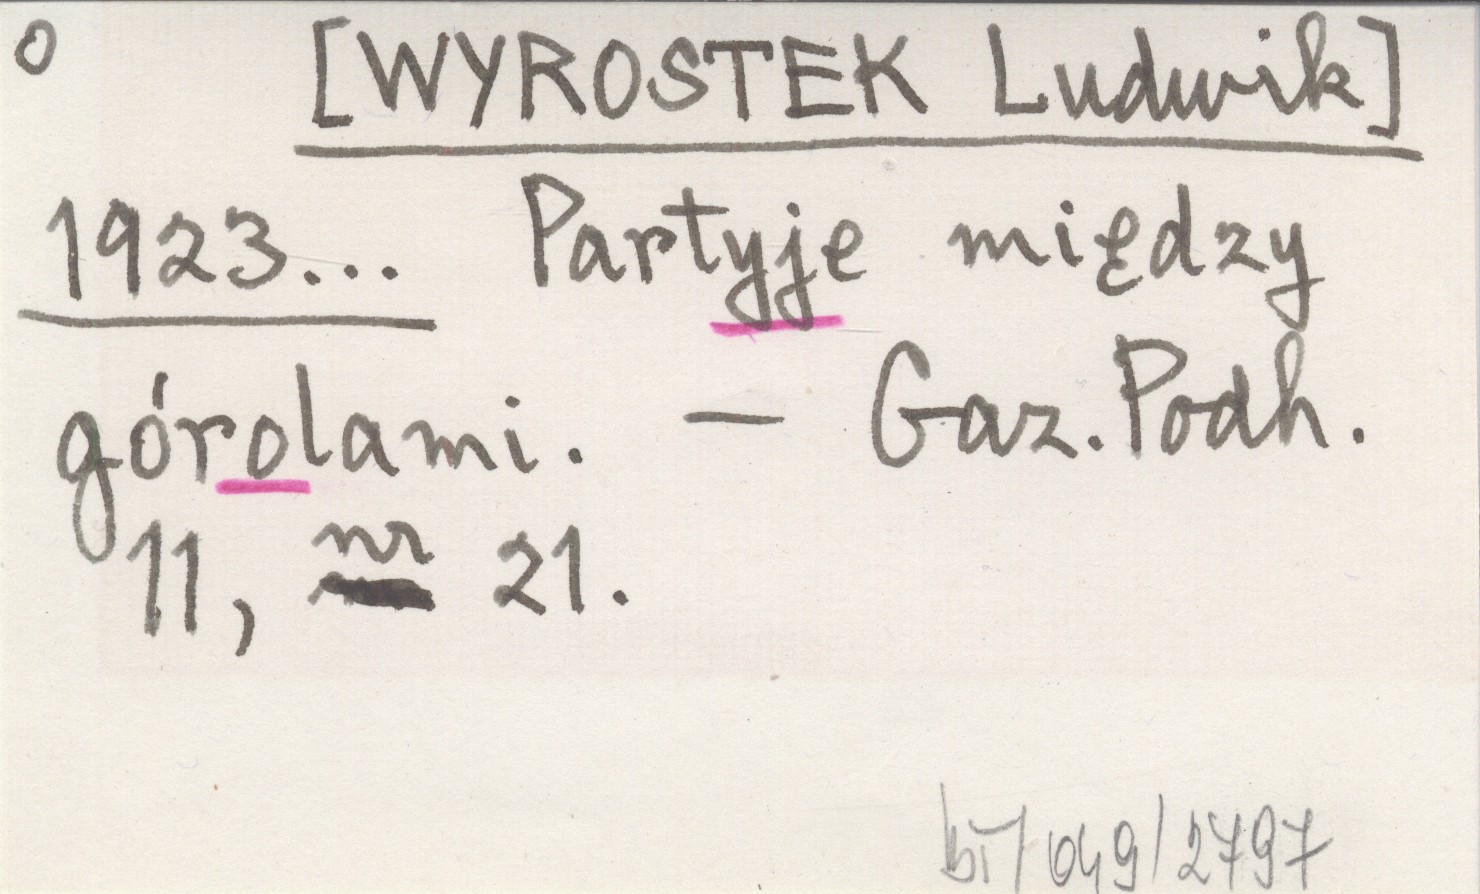 0 [WYROSTEK Ludwik]
1923... Partyje między
górolami. — Gaz. Podh.
11, nr 21.
bi/049/2797